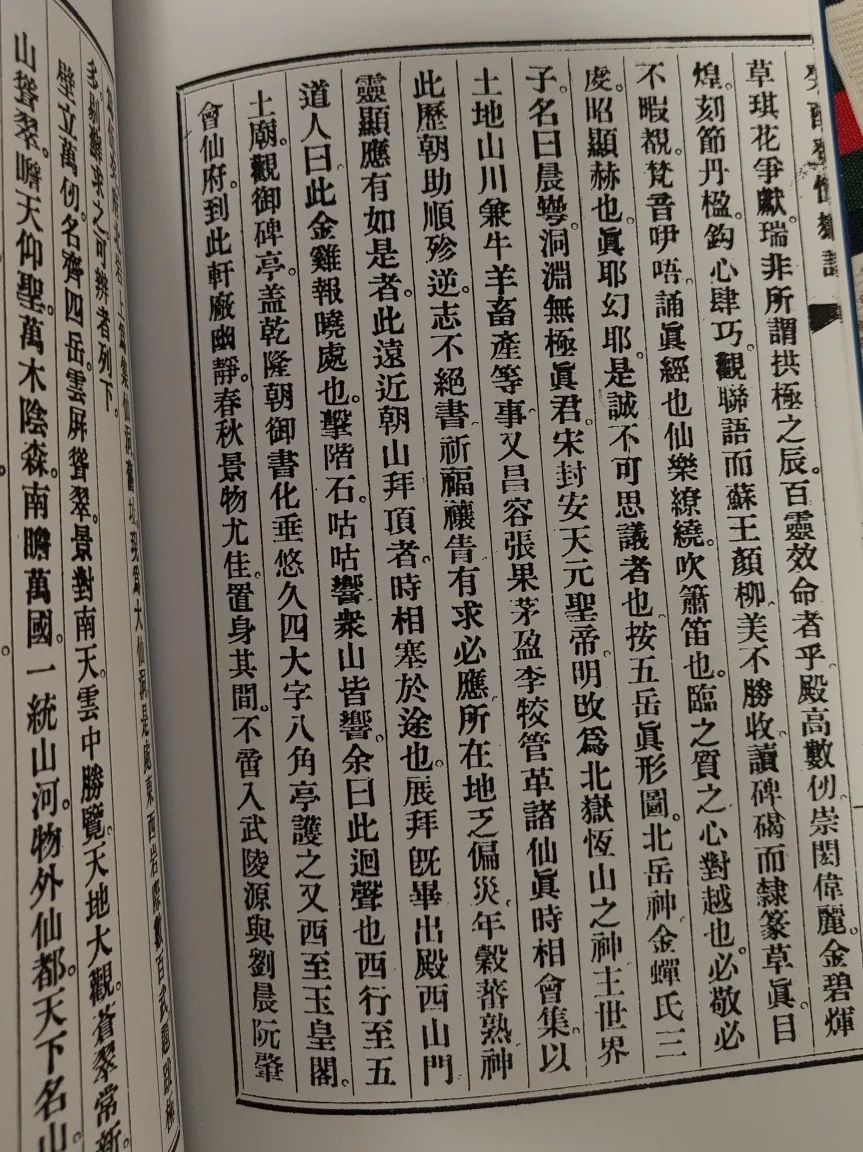 草琪花爭獻瑞非所謂拱極之辰。百靈效命者乎。殿高數仞。崇閎偉麗。金碧輝
煌。刻節丹楹。鈎心肆巧。觀聯語而蘇王顏柳。美不勝收。讀碑碣而隸篆草眞。目
不暇覩。梵音咿唔。誦眞經也仙樂繚繞。吹簫笛也。臨之質之心對越也。必敬必
虔。昭顯赫也。眞耶幻耶。是誠不可思議者也。按五岳眞形圖。北岳神金蟬氏三
子。名曰晨蕚。洞淵無極眞君。宋封安天元聖帝。明改爲北嶽恆山之神主世界
土地山川兼牛羊畜產等事又昌容張果茅盈李皎管革諸仙眞時相會集以
此歷朝助順殄逆。志不絕書。祈福禳眚有求必應。所在地乏偏災。年穀蕃熟神
靈顯應有如是者。此遠近朝山拜頂者。時相塞於途也。展拜旣畢出殿西山門
道人曰此金雞報曉處也。擊階石。咕咕響衆山皆響。余曰此迴聲也西行至五
土廟。觀御碑亭。盖乾隆朝御書化垂悠久四大字八角亭護之又西至玉皇閣。
會仙府。到此軒廠幽靜。春秋景物尤佳。置身其間。不啻入武陵源與劉晨阮肇
多剔蘚求之可辨者列下。
壁立萬仞。名齊四岳。雲屏聳翠。景對南天。雲中勝覽。天地大觀。蒼翠常新。
山聳翠。瞻天仰聖。萬木陰森。南瞻萬國。一統山河。物外仙都。天下名山。